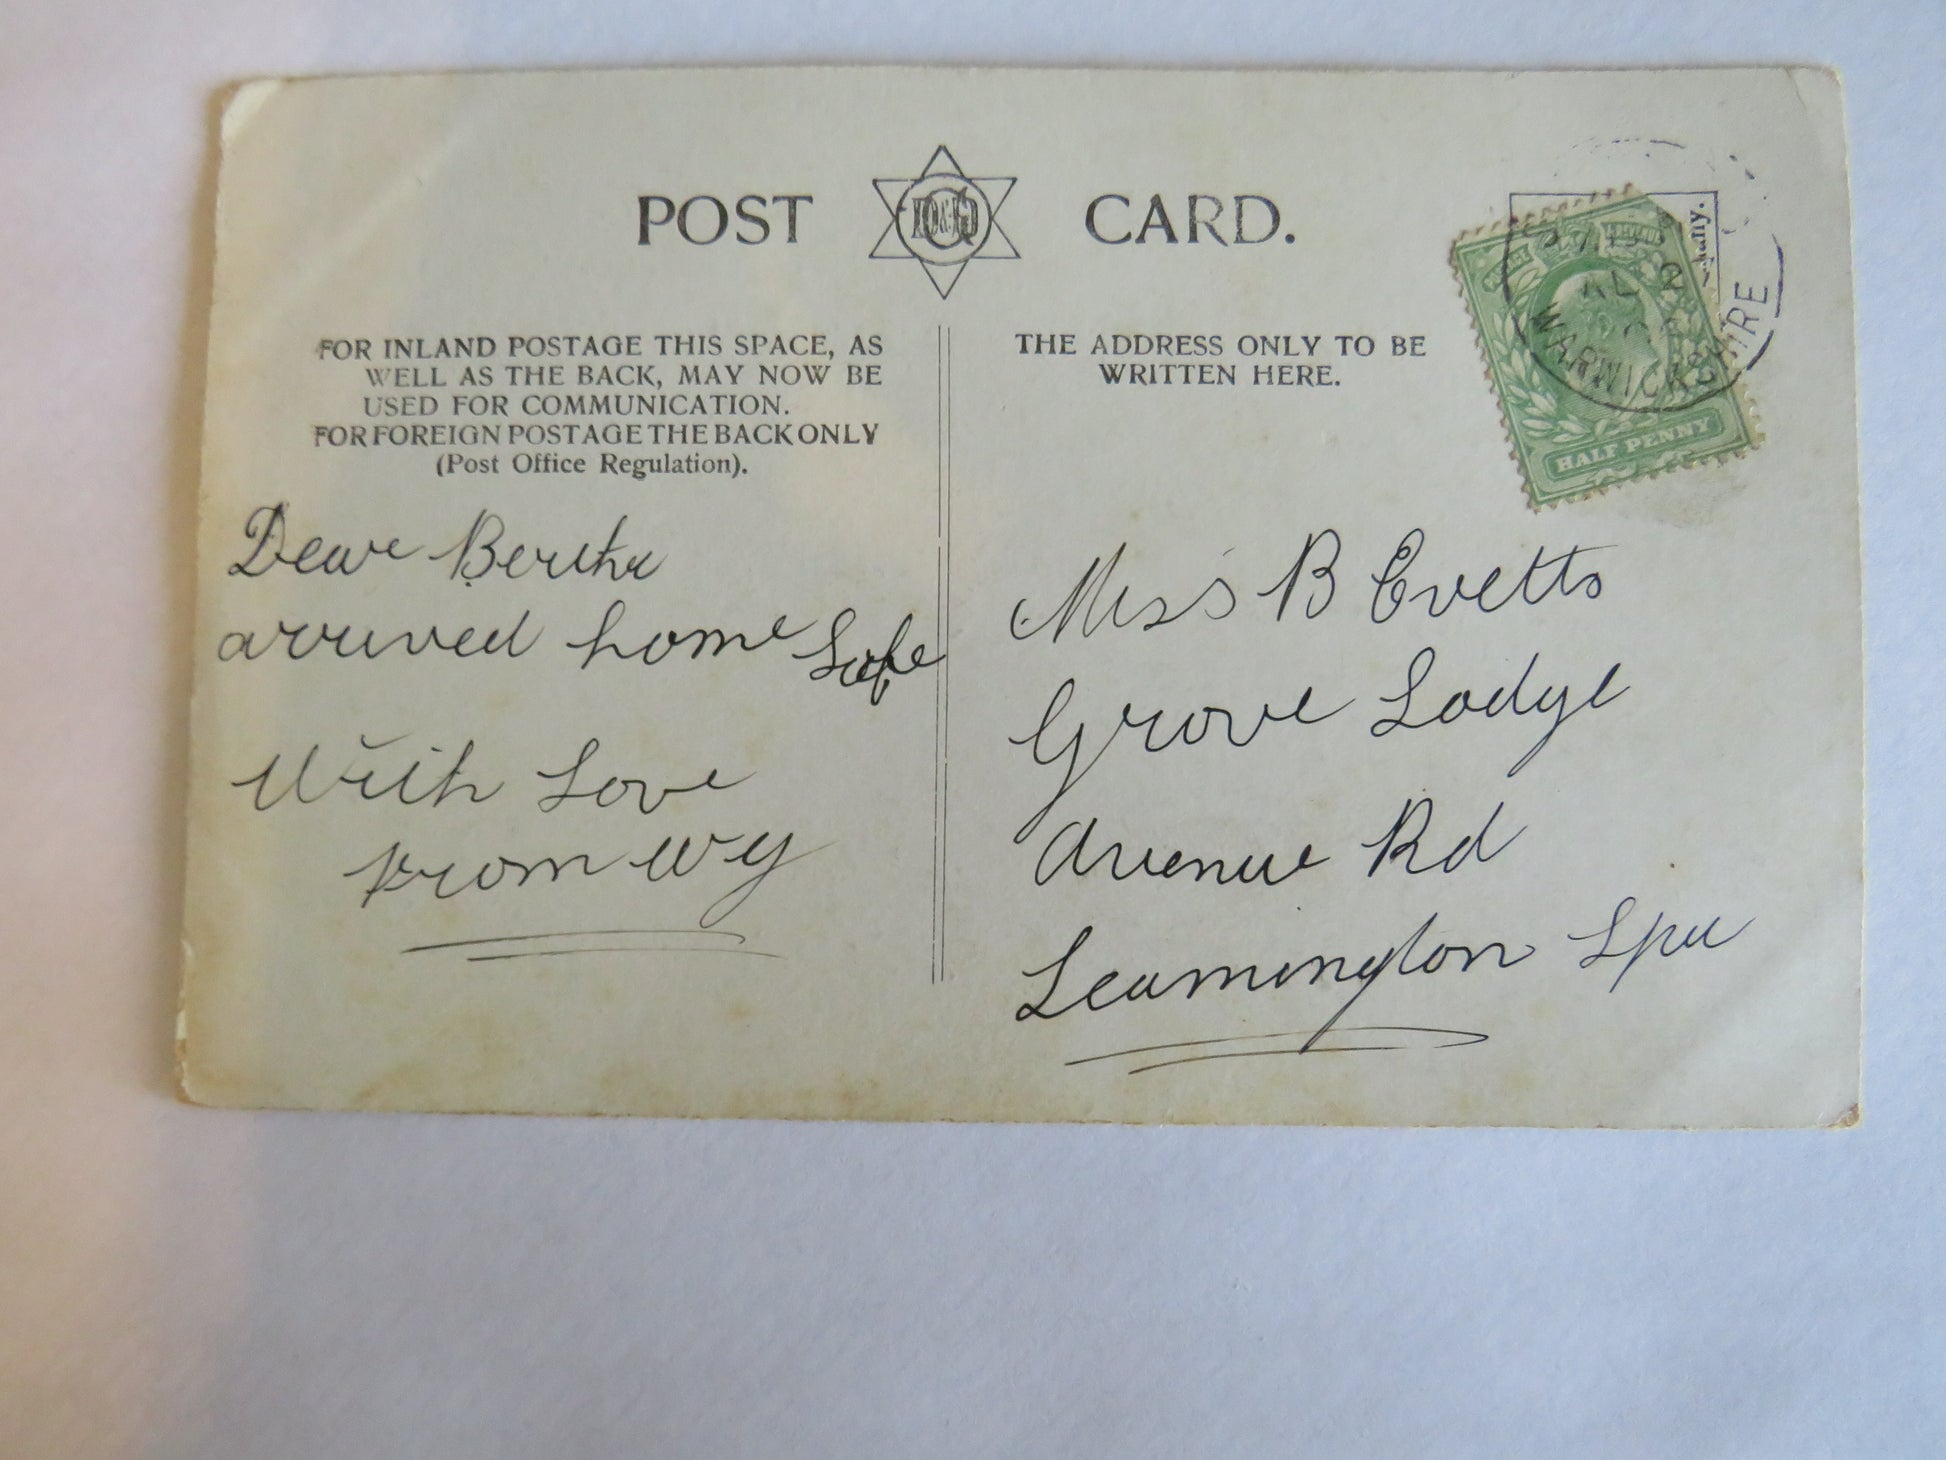 POST CARD.
FOR INLAND POSTAGE THIS SPACE, AS
WELL AS THE BACK, MAY NOW BE
USED FOR COMMUNICATION.
FOR FOREIGN POSTAGE THE BACK ONLY
(Post Office Regulation).
Dear Bertha
arrived home Safe
With Love
from WY
THE ADDRESS ONLY TO BE
WRITTEN HERE.
HALF PENNY
WARWICKSHIRE
Miss B Evetts
Grove Lodge
Avenue Rd
Leamington Spa